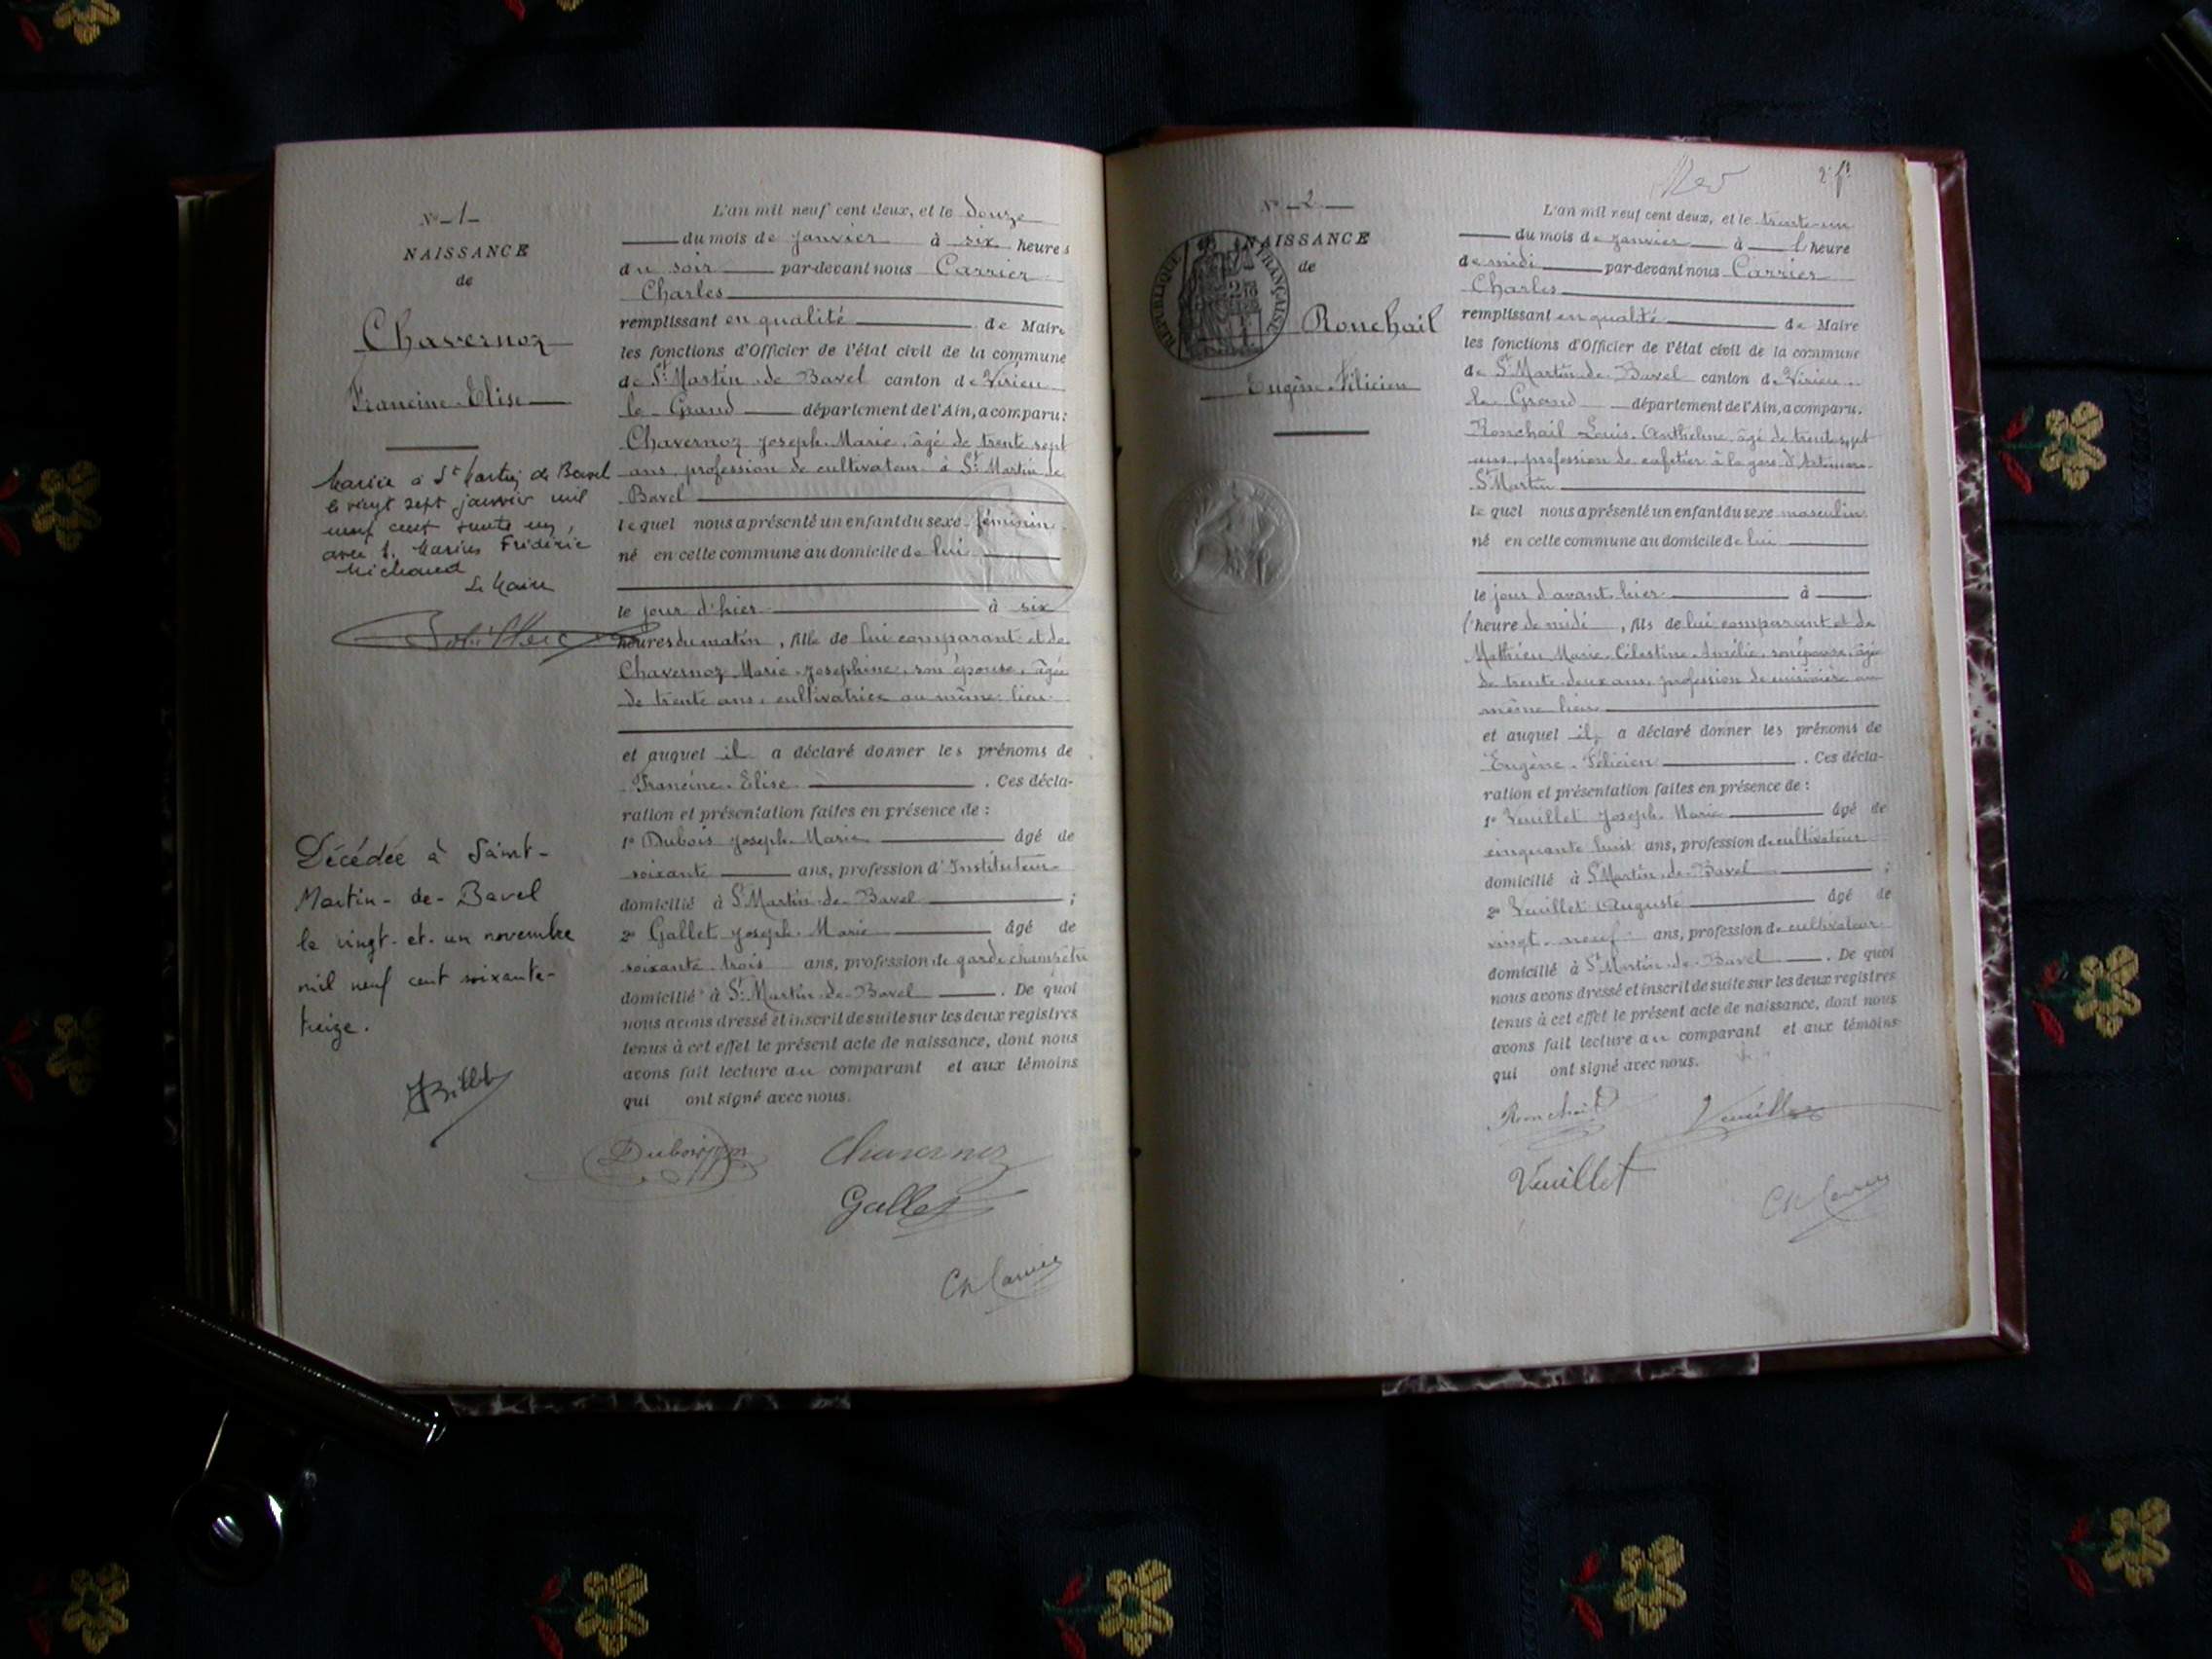 N° 1
NAISSANCE
de
Chavernoz
Francine Elise
Mariée à St Martin de Bavel
le vingt sept janvier mil
neuf cent trente un,
avec Marius Frédéric
Michaud
Le Maire
Décédée à Saint-
Martin-de-Bavel
le vingt-et-un novembre
mil neuf cent soixante-
treize.
L'an mil neuf cent deux, et le douze
du mois de janvier à six heures
du soir par-devant nous Carrier
Charles
remplissant en qualité de Maire
les fonctions d'Officier de l'état civil de la commune
de St Martin de Bavel canton de Virieu
le Grand département de l'Ain, a comparu:
Chavernoz Joseph Marie, âgé de trente sept
ans, profession de cultivateur à St Martin de
Bavel
lequel nous a présenté un enfant du sexe féminin
né en cette commune au domicile de lui
le jour d'hier à six
heures du matin, fille de lui comparant et de
Chavernoz Marie Josephine, son épouse, âgée
de trente ans, cultivatrice au même lieu
et auquel il a déclaré donner les prénoms de
Francine Elise. Ces décla-
ration et présentation faites en présence de :
1° Dubois Joseph Marie âgé de
soixante ans, profession d'Instituteur
domicilié à St Martin de Bavel ;
2° Gallet Joseph Marie âgé de
soixante trois ans, profession de garde champêtre
domicilié à St Martin de Bavel. De quoi
nous avons dressé et inscrit de suite sur les deux registres
tenus à cet effet le présent acte de naissance, dont nous
avons fait lecture au comparant et aux témoins
qui ont signé avec nous.
Dubois Chavernoz
Gallet
Ch Carrier
2e ft
N° 2
NAISSANCE
de
RÉPUBLIQUE FRANÇAISE
Ronchail
Eugène Félicien
L'an mil neuf cent deux, et le trente-un
du mois de janvier à l'heure
de midi par-devant nous Carrier
Charles
remplissant en qualité de Maire
les fonctions d'Officier de l'état civil de la commune
de St Martin de Bavel canton de Virieu
le Grand département de l'Ain, a comparu.
Ronchail Louis Anthelme, âgé de trente sept
ans, profession de cafetier à la gare d'Artemare
St Martin
lequel nous a présenté un enfant du sexe masculin
né en cette commune au domicile de lui
le jour d'avant hier à
l'heure de midi, fils de lui comparant et de
Mathieu Marie Célestine Amélie, son épouse, âgée
de trente deux ans, profession de cuisinière au
même lieu
et auquel il a déclaré donner les prénoms de
Eugène Félicien. Ces décla-
ration et présentation faites en présence de :
1° Veuillet Joseph Marie âgé de
cinquante huit ans, profession de cultivateur
domicilié à St Martin de Bavel ;
2° Veuillet Auguste âgé de
vingt-neuf ans, profession de cultivateur
domicilié à St Martin de Bavel. De quoi
nous avons dressé et inscrit de suite sur les deux registres
tenus à cet effet le présent acte de naissance, dont nous
avons fait lecture au comparant et aux témoins
qui ont signé avec nous.
Ronchail Veuillet
Veuillet
Ch Carrier